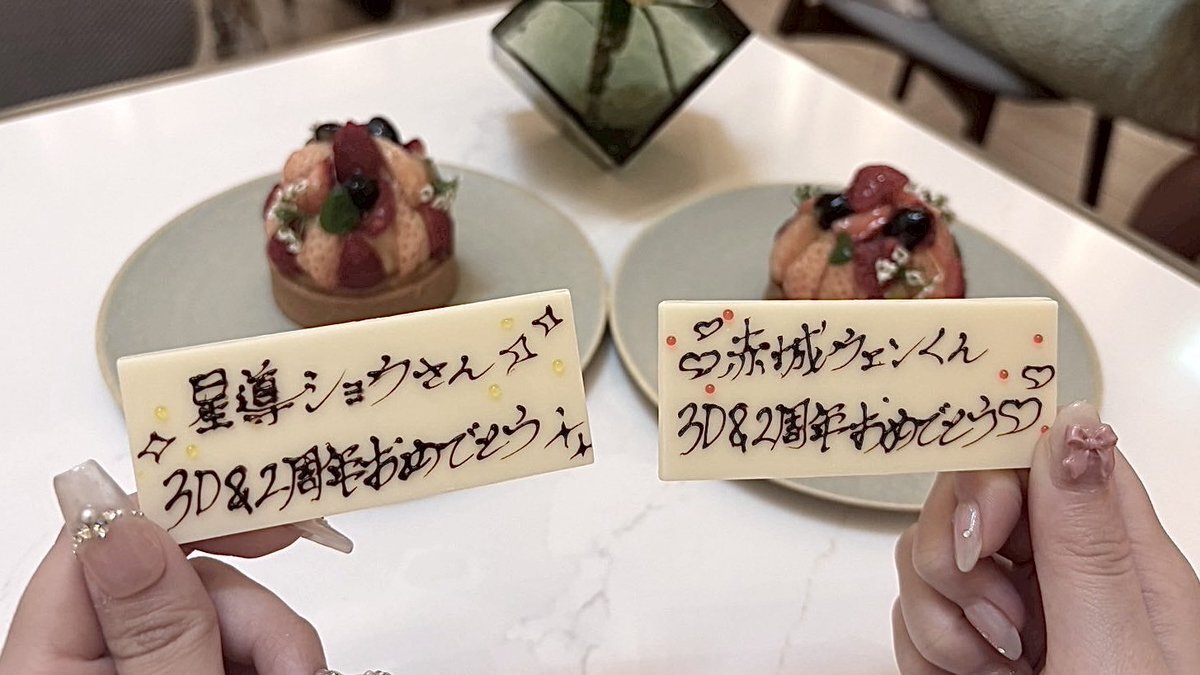 星導ショウさん
3D&2周年おめでとう
赤城ウェンくん
3D&2周年おめでとう